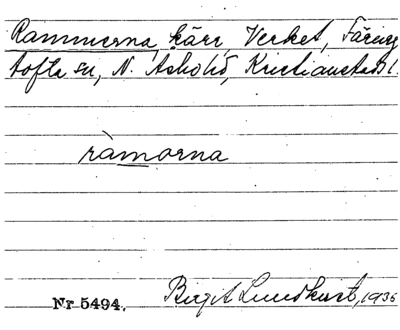 Rammerna, kärr, Verket, Färing
tofta sn, N. Åsbo hd, Kristianstad l.
ràmorna
Nr 5494. Birgit Lundkvist, 1936